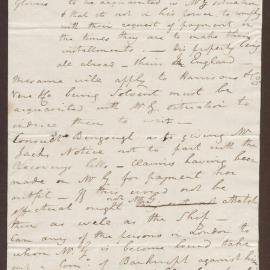 to be acquainted in Mr G situation
& that its not in his power to comply
with their request of payment in
the times they are to make their
installments. — his property being
all abroad — their England —
Mesama will apply to Harrisons of
being Solvent must be
acquainted with Mr G situation to
induce them to wait —
Consult Bengough as to giving Mr
Jacks Notice not to part with the
Recovery bills — Claims having been
made on Mr G for payment now
outfit — If this should not be
effectual ought not Mr G to attach
them as well as the Ship —
Can any of the persons in London to
whom Mr G is become bound take
out Com. of Bankrupt against him